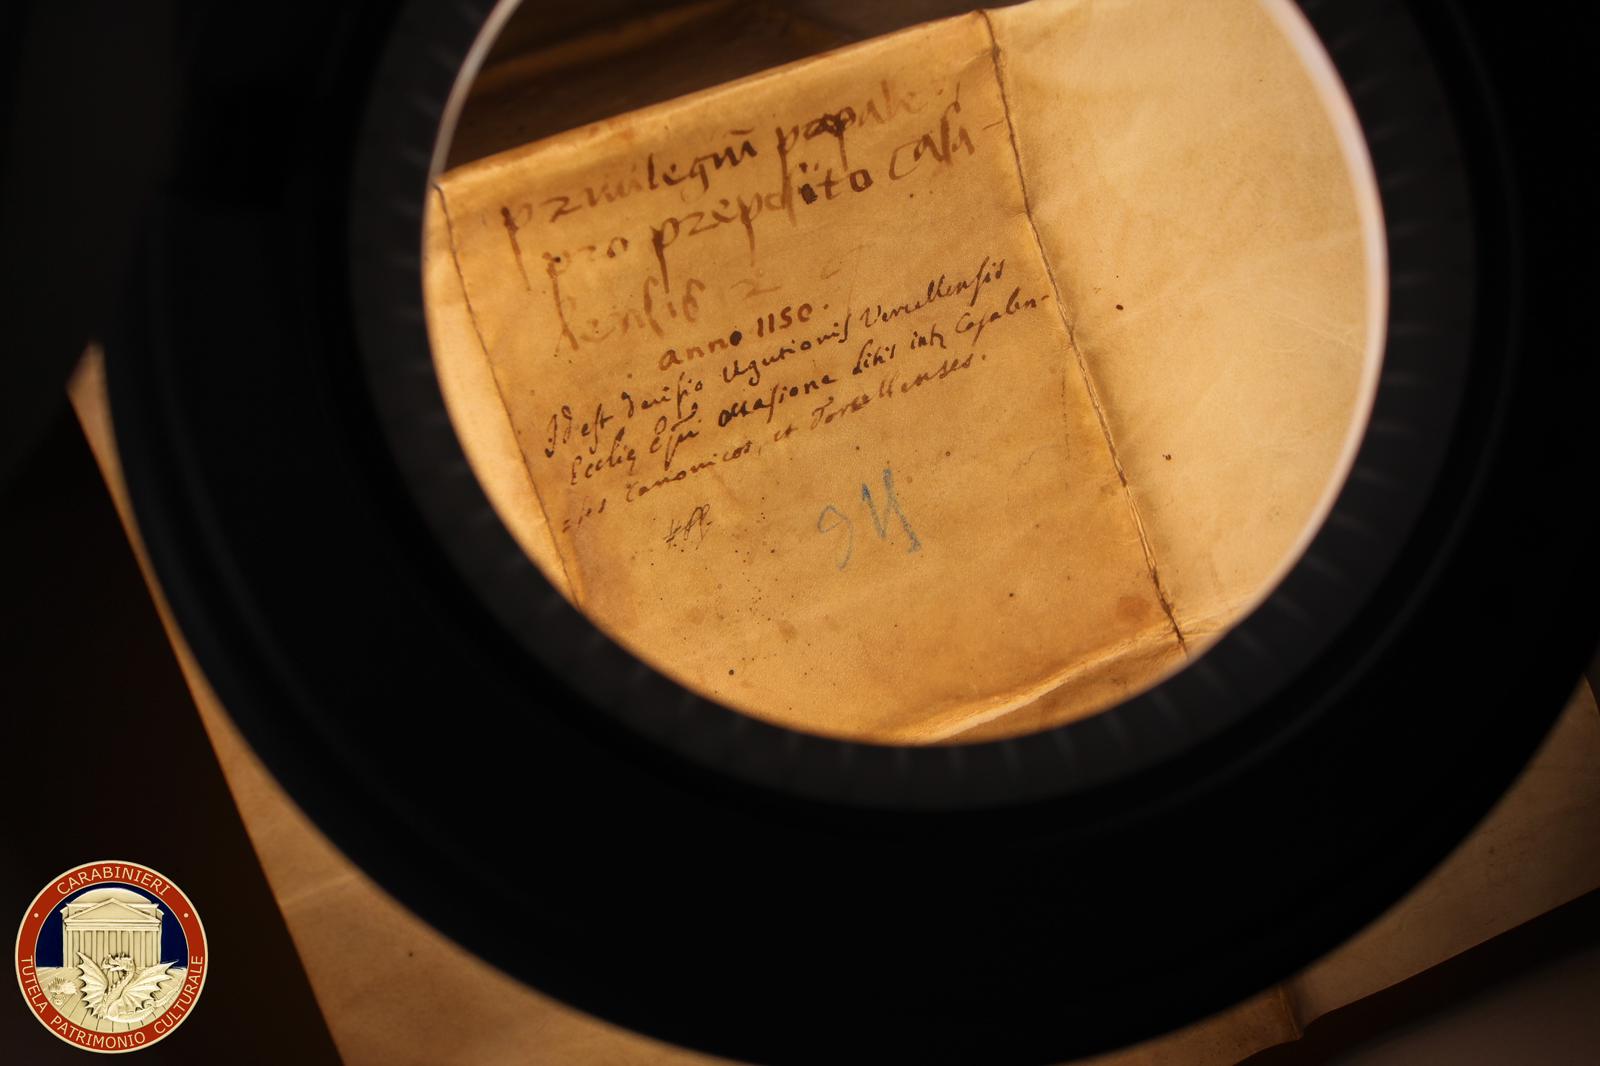 privilegiũ papale
pro preposito Casa-
lensis
anno 1150.
Id est decisio Ugutionis Vercellensis
Ecclię Epi occasione litis intr Casalen-
=ses Canonicos, et Torcellenses.
CARABINIERI
TUTELA PATRIMONIO CULTURALE